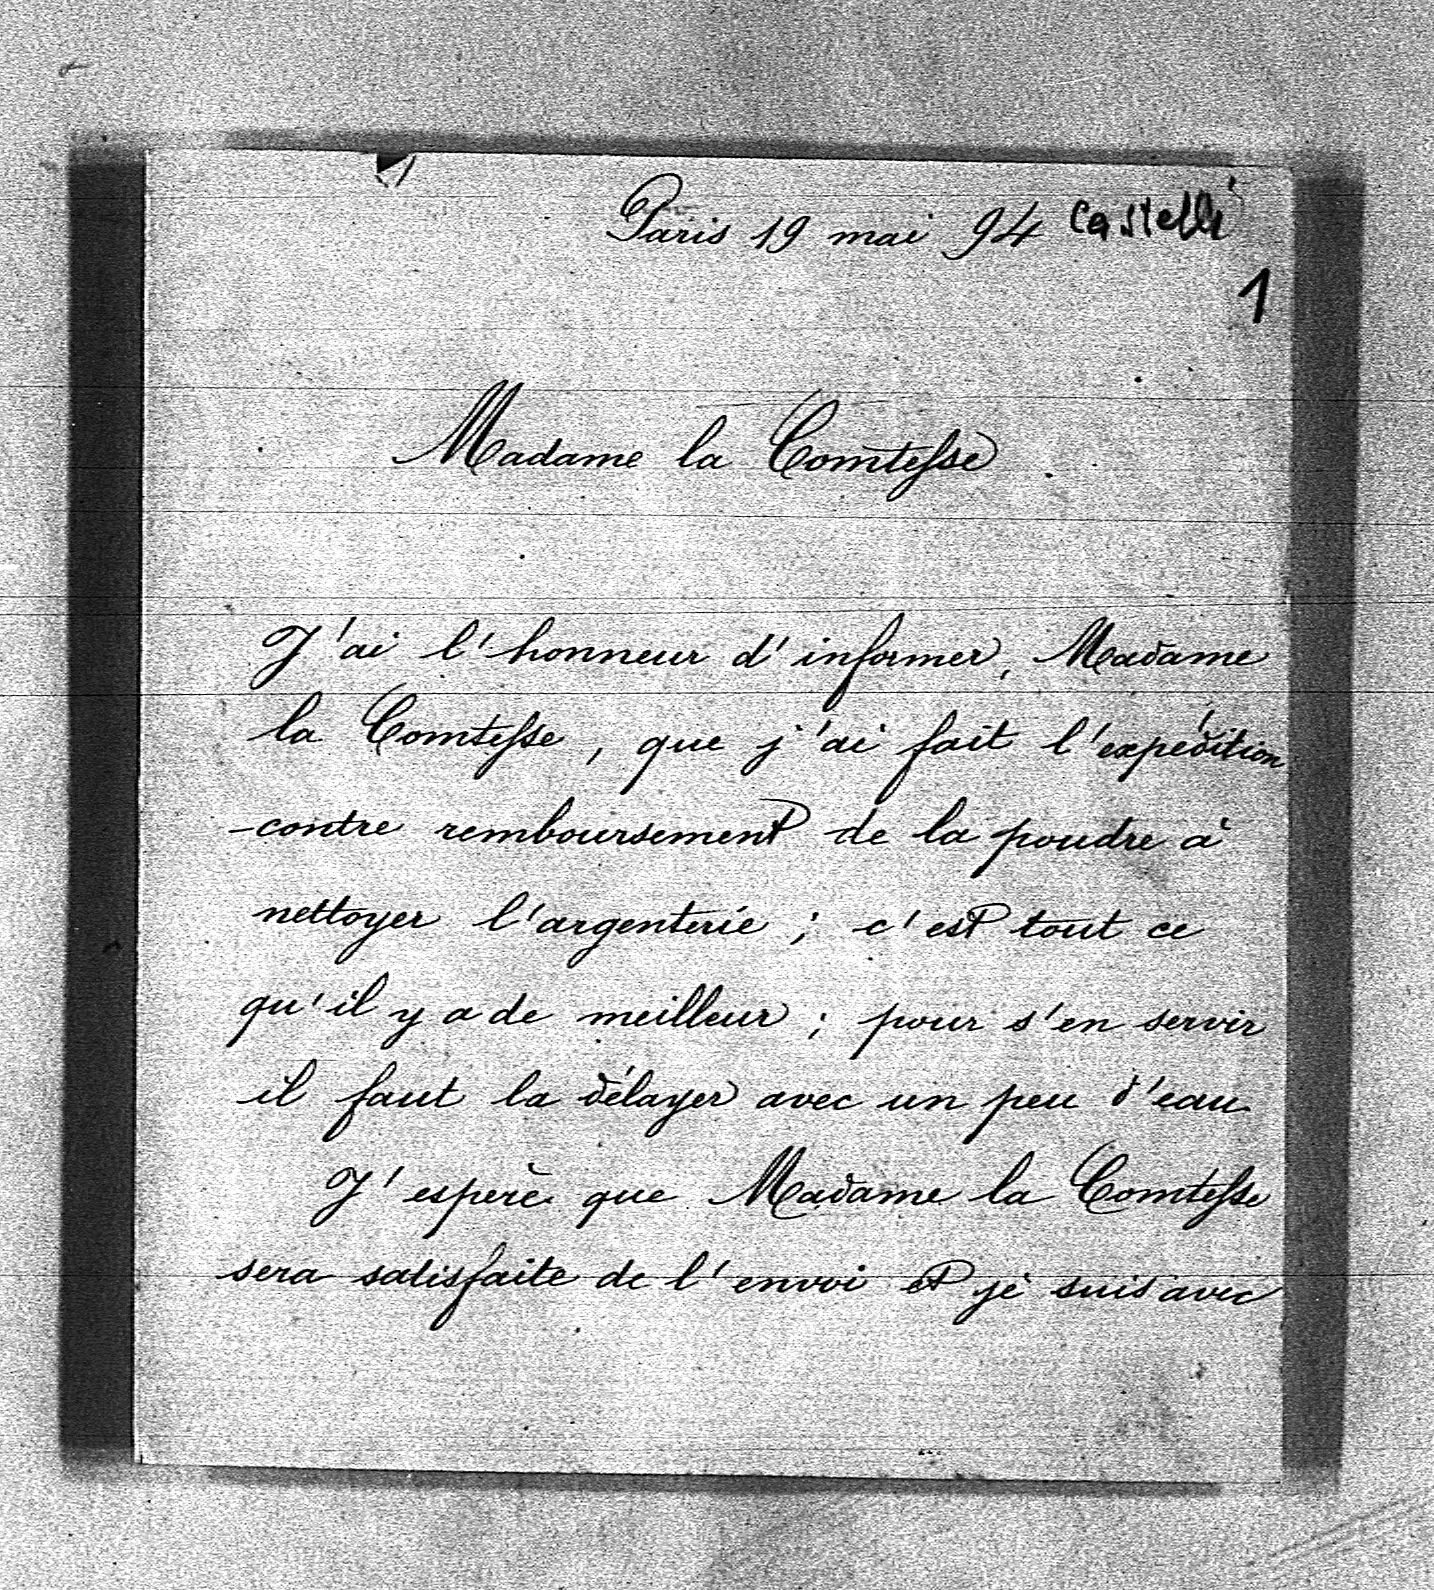 Paris 19 mai 94 Castelli
1
Madame la Comtesse
J'ai l'honneur d'informer, Madame
la Comtesse, que j'ai fait l'expédition
contre remboursement de la poudre à
nettoyer l'argenterie ; c'est tout ce
qu'il y a de meilleur ; pour s'en servir
il faut la délayer avec un peu d'eau.
J'espère que Madame la Comtesse
sera satisfaite de l'envoi et je suis avec